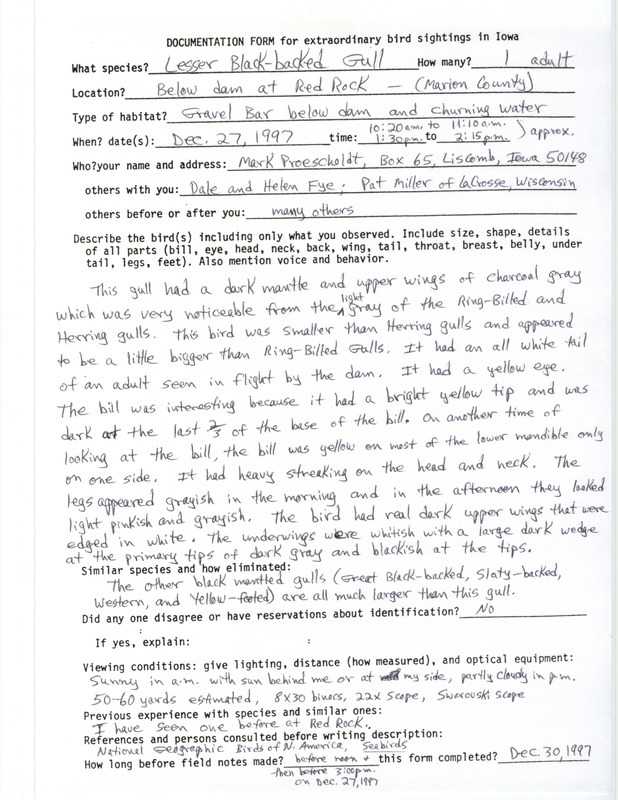 DOCUMENTATION FORM for extraordinary bird sightings in Iowa
What species? Lesser Black-backed Gull How many? 1 adult
Location? Below dam at Red Rock - (Marion County)
Type of habitat? Gravel Bar below dam and churning water
When? date(s): Dec. 27, 1997 time: 10:20a.m. to 11:10a.m. 1:30p.m. to 2:15p.m. ) approx.
Who?your name and address: Mark Proescholdt, Box 65, Liscomb, Iowa 50148
others with you: Dale and Helen Fye; Pat Miller of LaCrosse, Wisconsin
others before or after you: many others
Describe the bird(s) including only what you observed. Include size, shape, details
of all parts (bill, eye, head, neck, back, wing, tail, throat, breast, belly, under
tail, legs, feet). Also mention voice and behavior.
This gull had a dark mantle and upper wings of charcoal gray
which was very noticeable from the light gray of the Ring-Billed and
Herring gulls. This bird was smaller than Herring gulls and appeared
to be a little bigger than Ring-Billed Gulls. It had an all white tail
of an adult seen in flight by the dam. It had a yellow eye.
The bill was interesting because it had a bright yellow tip and was
dark at the last 2/3 of the base of the bill. On another time of
looking at the bill, the bill was yellow on most of the lower mandible only
on one side. It had heavy streaking on the head and neck. The
legs appeared grayish in the morning and in the afternoon they looked
light pinkish and grayish. The bird had real dark upper wings that were
edged in white. The underwings were whitish with a large dark wedge
at the primary tips of dark gray and blackish at the tips.
Similar species and how eliminated:
The other black mantled gulls (Great Black-backed, Slaty-backed,
Western, and Yellow-footed) are all much larger than this gull.
Did any one disagree or have reservations about identification? No
If yes, explain:
Viewing conditions: give lighting, distance (how measured), and optical equipment:
Sunny in a.m. with sun behind me or at my side, partly cloudy in p.m.
50-60 yards estimated, 8X30 binocs, 22X Scope, Swarouski scope
Previous experience with species and similar ones:
I have seen one before at Red Rock.
References and persons consulted before writing description:
National Geographic Birds of N. America, Seabirds
How long before field notes made? before noon + this form completed? Dec. 30, 1997
then before 3:00p.m.
on Dec. 27, 1997